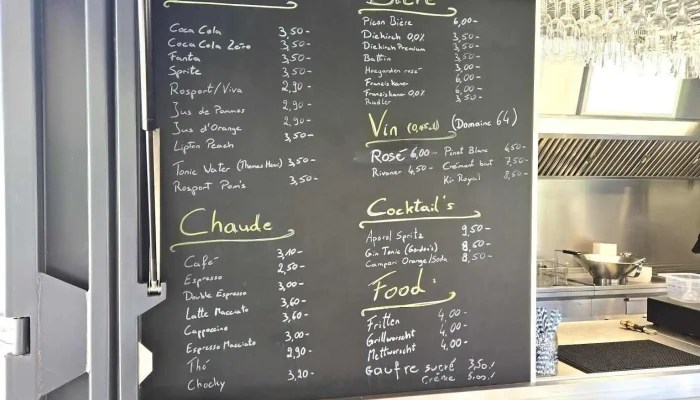 Coca Cola 3,50-
Coca Cola Zero 3,50-
Fanta 3,50-
Sprite 3,50-
Rosport/Viva 2,90-
Jus de Pommes 2,90-
Jus d'Orange 2,90-
Lipton Peach 3,50-
Tonic Water (Thomas Henry) 3,50-
Rosport Pom's 3,50-
Chaude
Café 3,10-
Espresso 2,50-
Double Espresso 3,00-
Latte Macciato 3,60-
Cappoccino 3,60-
Espresso Macciato 3,00-
Thé 2,90-
Chocky 3,20-
Bière
Picon Bière 6,00-
Diekirch 0,0% 3,50-
Diekirch Premium 3,50-
Battin 3,50-
Hoegarden rosé 3,00-
Franziskaner 6,00-
Franziskaner 0,0% 6,00-
Radler 3,50-
Vin (Domaine 64)
Rosé 6,00- Pinot Blanc 6,50-
Rivaner 4,50- Crémant brut 7,50-
Kir Royal 8,50-
Cocktail's
Aparol Spritz 9,50-
Gin Tonic (Gordon's) 8,50-
Campari Orange/Soda 8,50-
Food:
Fritten 4,00-
Grillwurscht 4,00-
Mettwurscht 4,00-
Gaufre sucré 3,50.-
crème